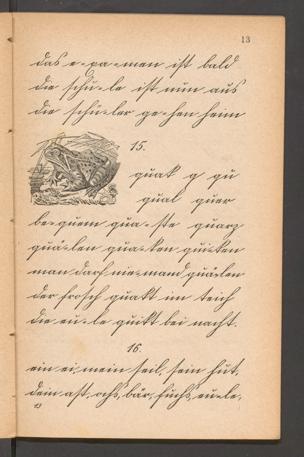 13
das e-xa-men ist bald
die schu-le ist nun aus
die schü-ler ge-hen heim
15.
quak q qu
qual quer
be-quem qua-ste quarz
quä-len qua-ken qui-ken
man darf nie-mand quälen
der frosch quakt im teich
die eu-le quikt bei nacht.
16.
ein ei, mein seil, sein hut,
dein ast, ochs, bär, fuchs, eu-le,